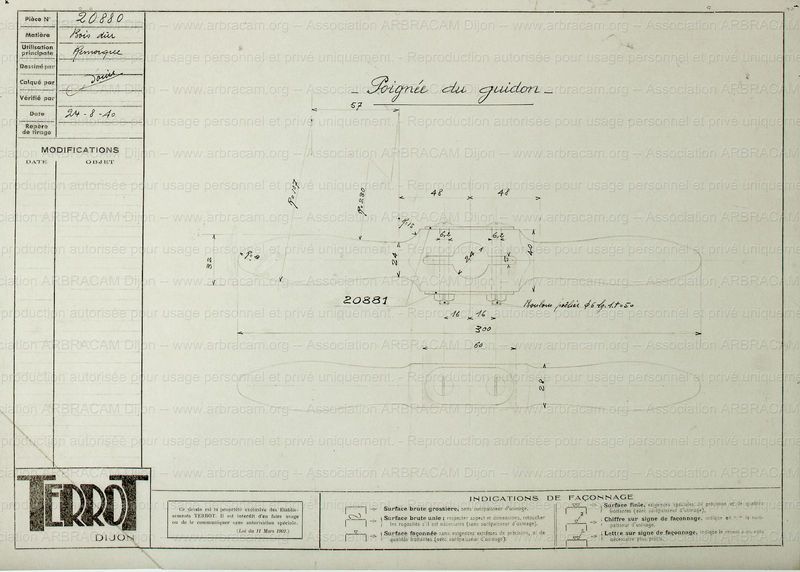 Pièce N° 20880
Matière Bois dur
Utilisation principale Remorque
Dessiné par
Calqué par
Vérifié par
Date 24-8-40
Repère de tirage
MODIFICATIONS
DATE OBJET
Poignée du guidon
57
48 48
R=117
R=230
6,2 6,2
32
24
24
40
20881
16 16
300
60
28
TERROT
DIJON
Ce dessin est la propriété exclusive des Etablis-
sements TERROT. Il est interdit d'en faire usage
ou de le communiquer sans autorisation spéciale.
(Loi du 11 Mars 1902.)
INDICATIONS DE FAÇONNAGE
Surface brute grossière, sans surépaisseur d'usinage.
Surface brute unie; respecter aspect et dimensions, retoucher
les rugosités s'il est nécessaire (sans surépaisseur d'usinage).
Surface façonnée sans exigences extrêmes de précision, ni de
qualités frottantes (avec surépaisseur d'usinage).
Surface finie, exigences spéciales de précision et de qualités
frottantes (avec surépaisseur d'usinage).
Chiffre sur signe de façonnage, indique en
Lettre sur signe de façonnage, indique le
www.arbracam.org – Association ARBRACAM Dijon
Reproduction autorisée pour usage personnel et privé uniquement.